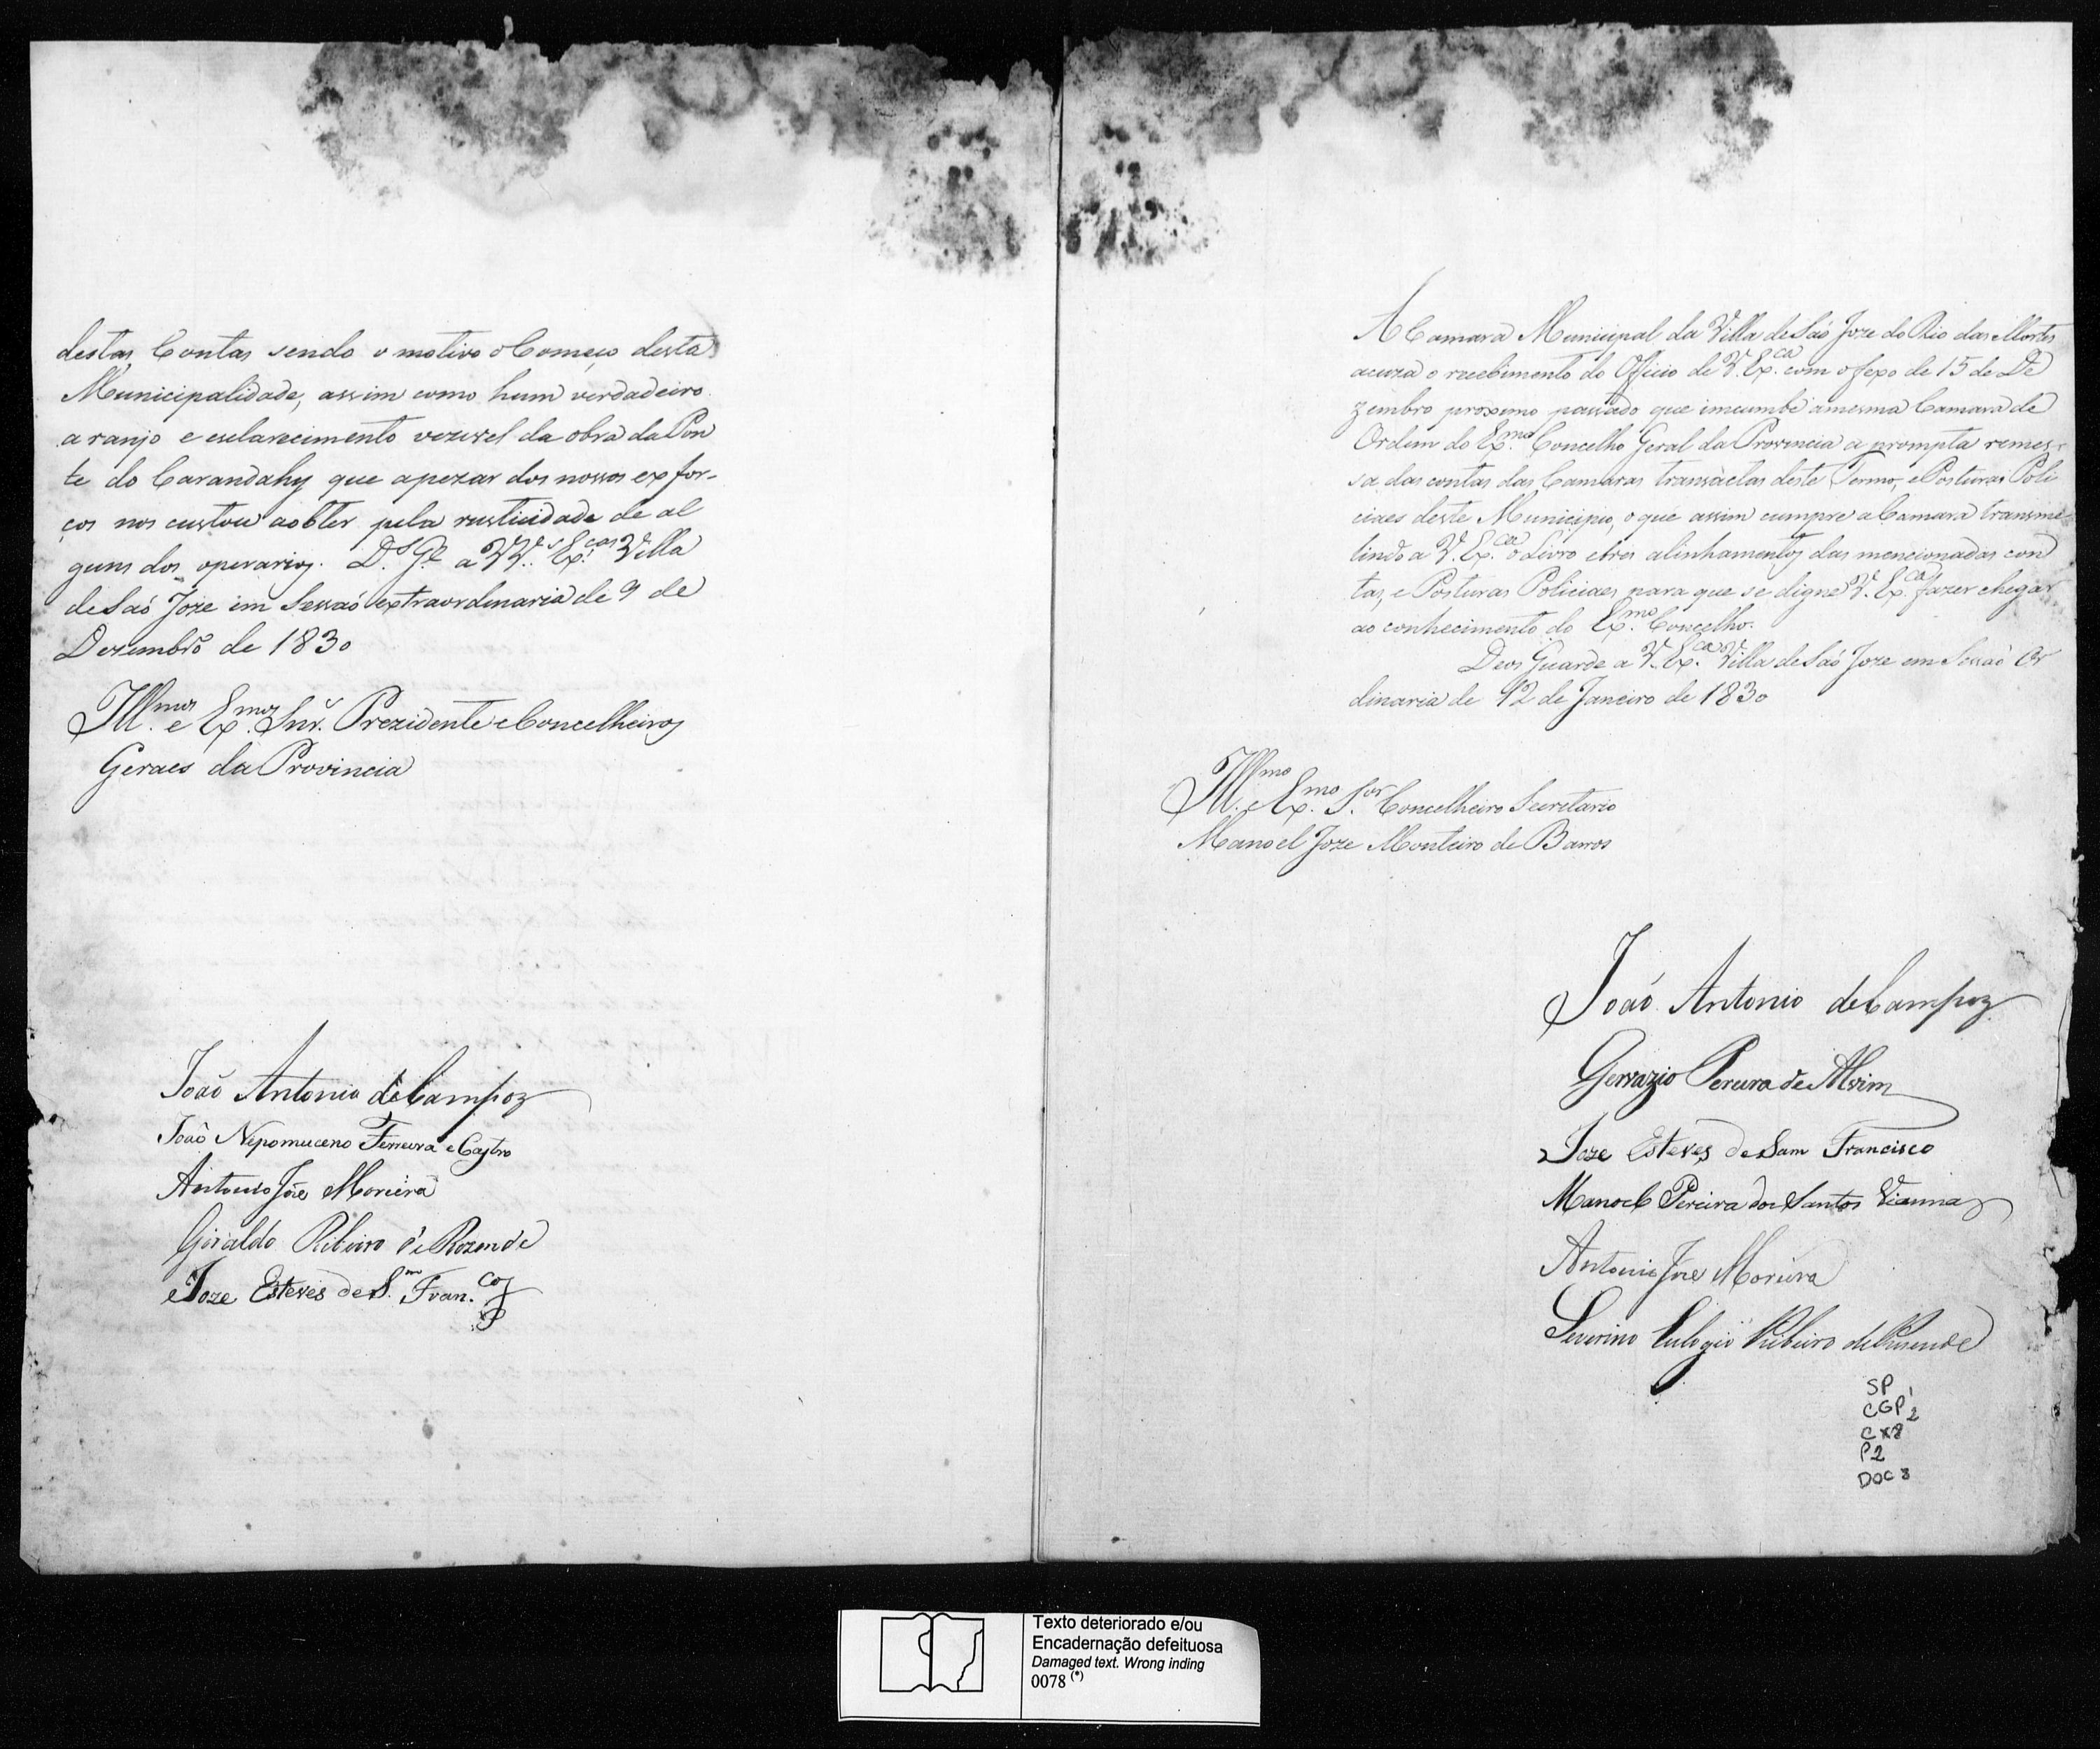 destas Contas sendo o motivo o Começo desta
Municipalidade, assim como hum verdadeiro
aranjo e esclarecimento da obra da Pon
te do Carandahy que apezar dos nossos exfor-
ços nos custou aobter pela rusticidade de al
guns dos operarios. D.s G.e a VV. Ex.cas Villa
de Saó Joze em Sessaó extraordinaria de 9 de
Dezembro de 1830
Ill.mos e Ex.mos Snr. Prezidente e Concelheiros
Geraes da Provincia
João Antonio de Campoz
Joaõ Nepomuceno Ferreira e Castro
Antonio Joze Moreira
Giraldo Ribeiro de Rozende
Joze Esteves de S.m Fran.co
A Camara Municipal da Villa de Saó Joze do Rio das Mortes
acuza o recebimento do Officio de V. Ex.ca com o fexo de 15 de De
zembro proximo passado que imcumbe amesma Camara de
Ordem do Ex.mo Concelho Geral da Provincia a prompta remes-
sa das contas das Camaras transactas deste Termo, e Posturas Poli
ciaes deste Municipio, o que assim cumpre a Camara transme
tindo a V. Ex.ca o Livro e tres alinhamentos das mencionadas con
tas, e Posturas Policiaes para que se digne V. Ex.ca fazer chegar
ao conhecimento do Ex.mo Concelho.
Deos Guarde a V. Ex.ca Villa de Saó Joze em Sessaó Or
dinaria de 12 de Janeiro de 1830
Ill.mo e Ex.mo S.or Concelheiro Secretario
Manoel Joze Monteiro de Barros
Joaó Antonio de Campoz
Gervazio Pereira de Alvim
Joze Esteves de Sam Francisco
Manoel Pereira dos Santos Vianna
Antonio Joze Moreira
Severino Eulogio Ribeiro de Rezende
SP
CGP 1 2
CX8
P2
DOC 8
Texto deteriorado e/ou
Encadernação defeituosa
Damaged text. Wrong inding
0078 (*)